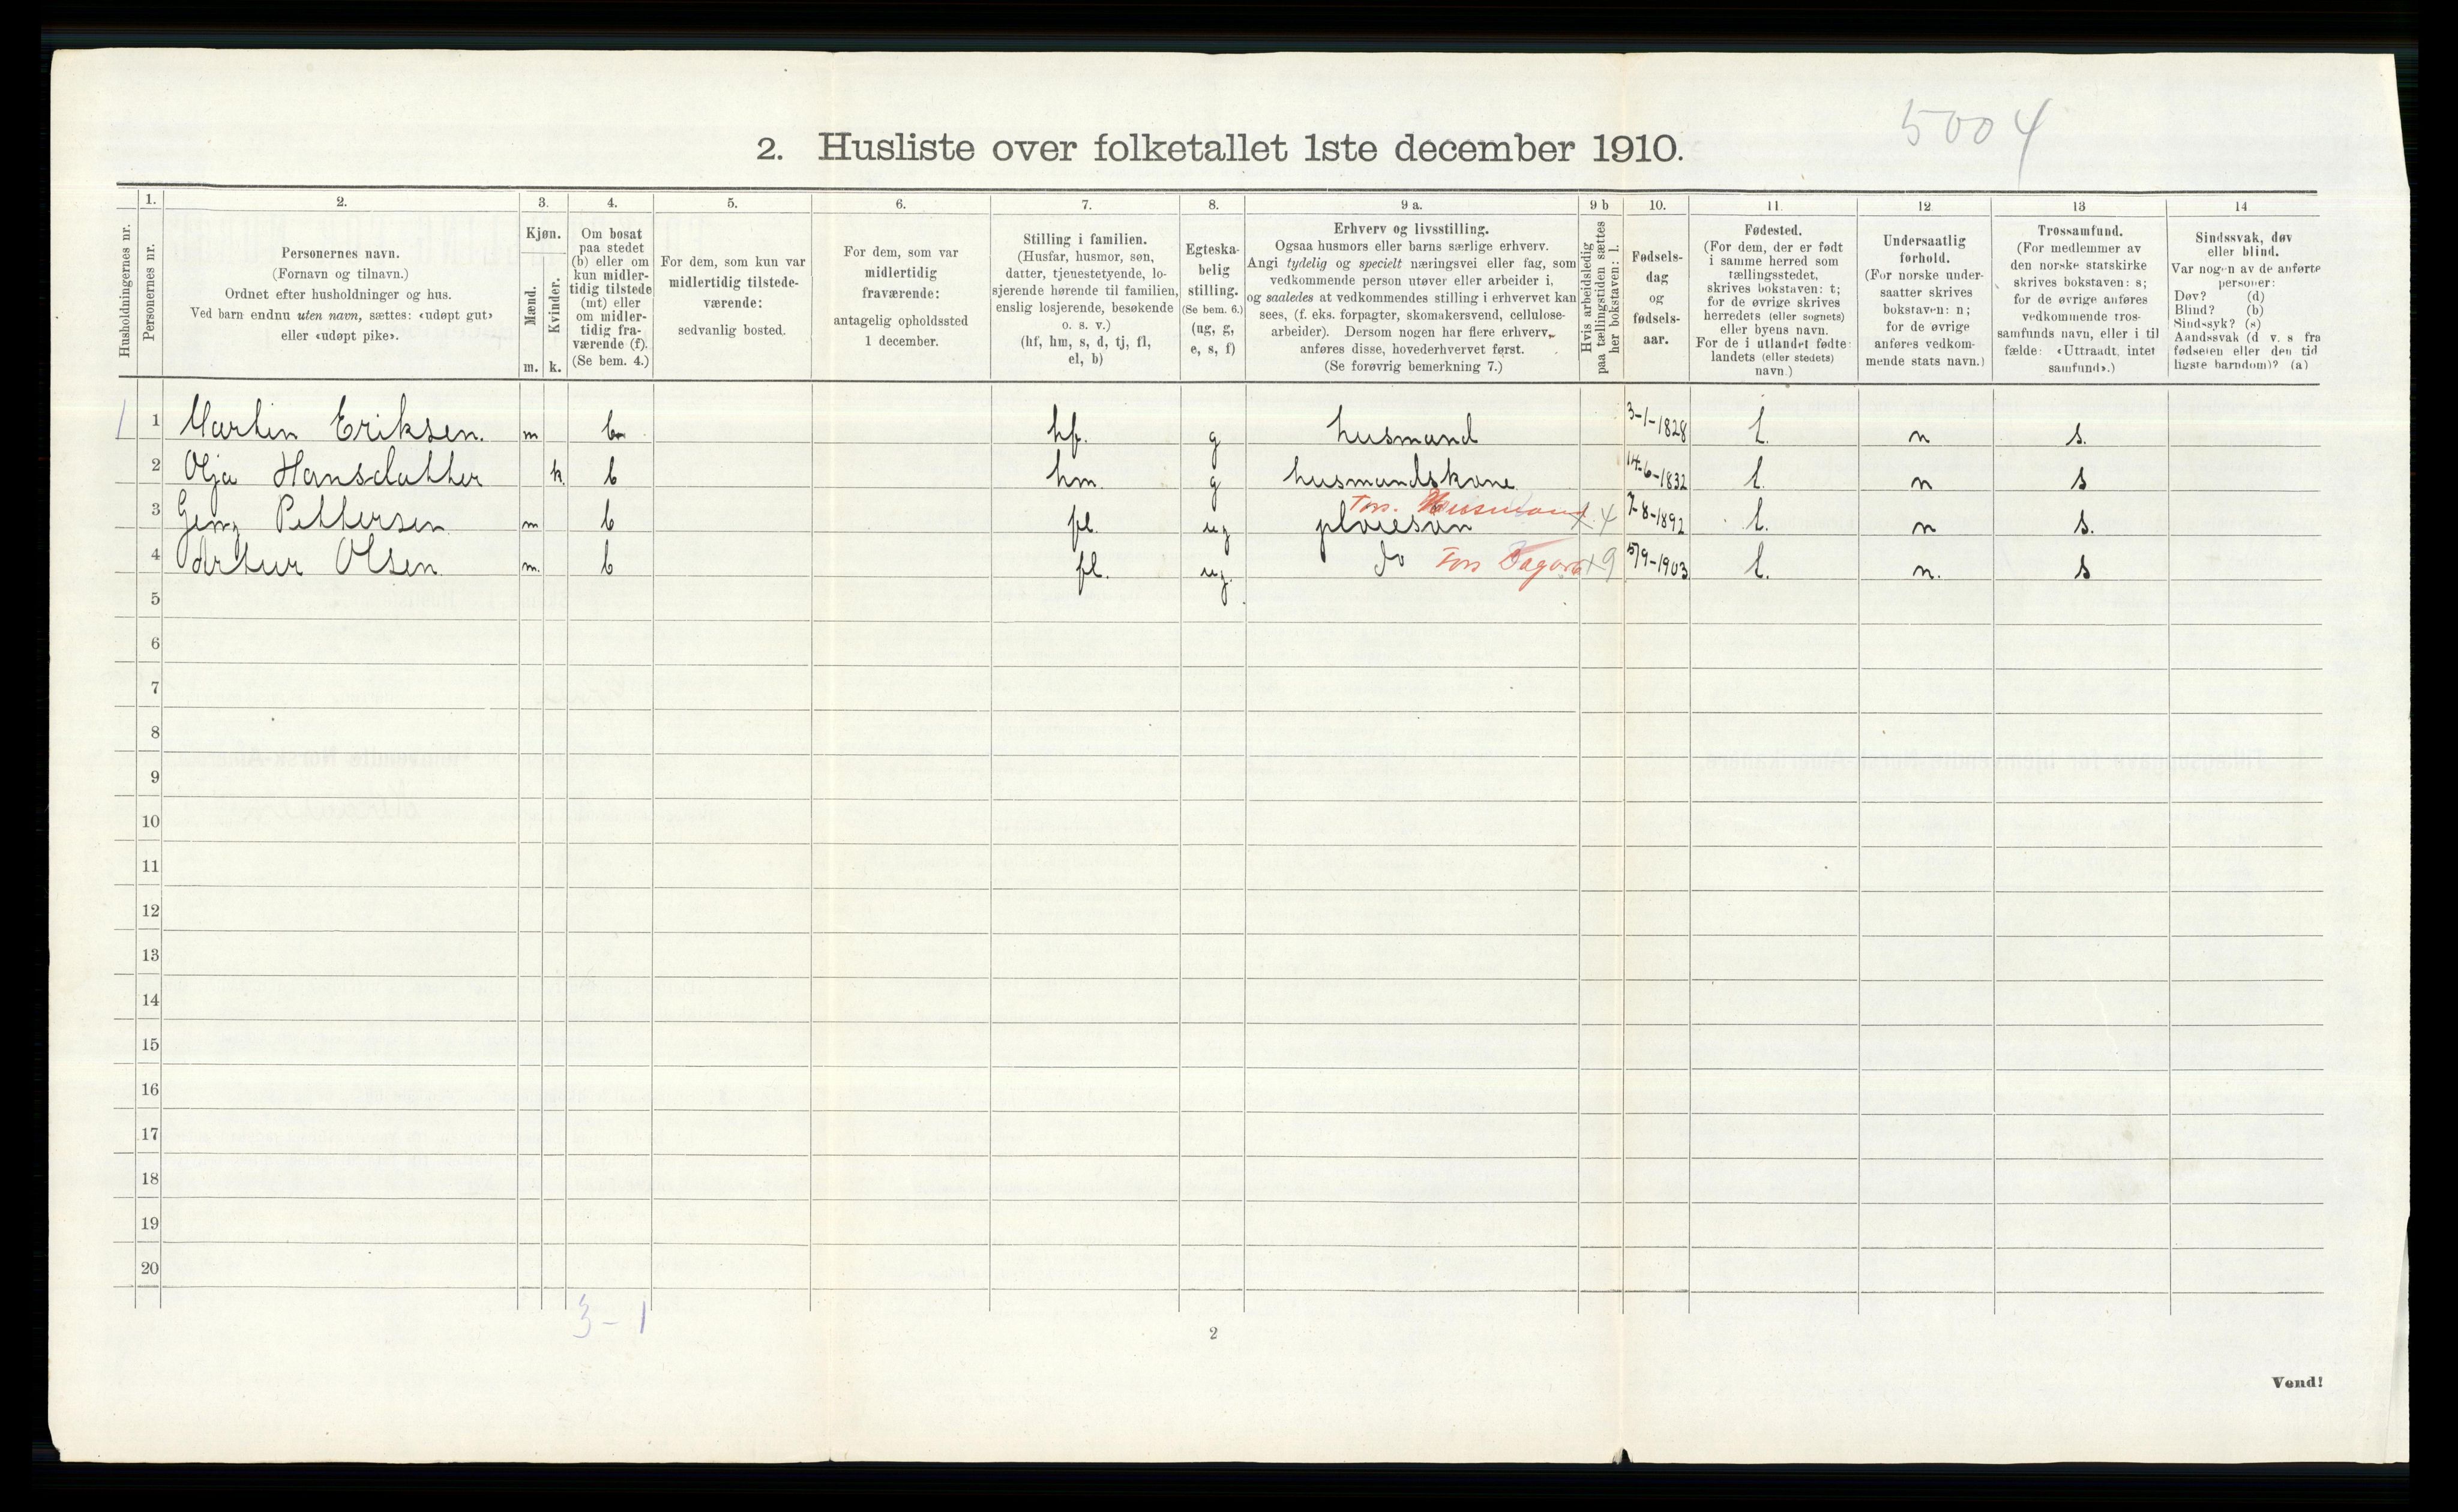 5004
2. Husliste over folketallet 1ste december 1910.
1. 2. 3. 4. 5. 6. 7. 8. 9 a. 9 b 10. 11. 12 13 14
Husholdningernes nr.
Personernes nr.
Personernes navn.
(Fornavn og tilnavn.)
Ordnet efter husholdninger og hus.
Ved barn endnu uten navn, sættes: «udøpt gut»
eller «udøpt pike».
Kjøn.
Mænd.
Kvinder.
m. k.
Om bosat
paa stedet
(b) eller om
kun midler-
tidig tilstede
(mt) eller
om midler-
tidig fra-
værende (f).
(Se bem. 4.)
For dem, som kun var
midlertidig tilstede-
værende:
sedvanlig bosted.
For dem, som var
midlertidig
fraværende:
antagelig opholdssted
1 december.
Stilling i familien.
(Husfar, husmor, søn,
datter, tjenestetyende, lo-
sjerende hørende til familien,
enslig losjerende, besøkende
o. s. v.)
(hf, hm, s, d, tj, fl,
el, b)
Egteska-
belig
stilling.
(Se bem. 6.)
(ug, g,
e, s, f)
Erhverv og livsstilling.
Ogsaa husmors eller barns særlige erhverv.
Angi tydelig og specielt næringsvei eller fag, som
vedkommende person utøver eller arbeider i,
og saaledes at vedkommendes stilling i erhvervet kan
sees, (f. eks. forpagter, skomakersvend, cellulose-
arbeider). Dersom nogen har flere erhverv,
anføres disse, hovederhvervet først.
(Se forøvrig bemerkning 7.)
Hvis arbeidsledig
paa tællingstiden sættes
her bokstaven: l.
Fødsels-
dag
og
fødsels-
aar.
Fødested.
(For dem, der er født
i samme herred som
tællingsstedet,
skrives bokstaven: t;
for de øvrige skrives
herredets (eller sognets)
eller byens navn.
For de i utlandet fødte:
landets (eller stedets)
navn.)
Undersaatlig
forhold.
(For norske under-
saatter skrives
bokstaven: n;
for de øvrige
anføres vedkom-
mende stats navn.)
Trossamfund.
(For medlemmer av
den norske statskirke
skrives bokstaven: s;
for de øvrige anføres
vedkommende tros-
samfunds navn, eller i til
fælde: «Uttraadt, intet
samfund».)
Sindssvak, døv
eller blind.
Var nogen av de anførte
personer:
Døv? (d)
Blind? (b)
Sindssyk? (s)
Aandssvak (d v. s fra
fødselen eller den tid
ligste barndom)? (a)
1 1 Martin Eriksen. m b hf. g husmand 3-1-1828 t. n s.
2 Olja Hansdatter k b hm. g husmandskone 14-6-1832 t. n s
Fors. Husmand
3 Petersen m b fl. ug pleiesøn x 4 7-8-1892 t. n s.
4 Artur Olsen m. b fl. ug. do Fors x9 5/9-1903 t. n. s
5
6
7
8
9
10
11
12
13
14
15
16
17
18
19
20
3 - 1
2
Vend!